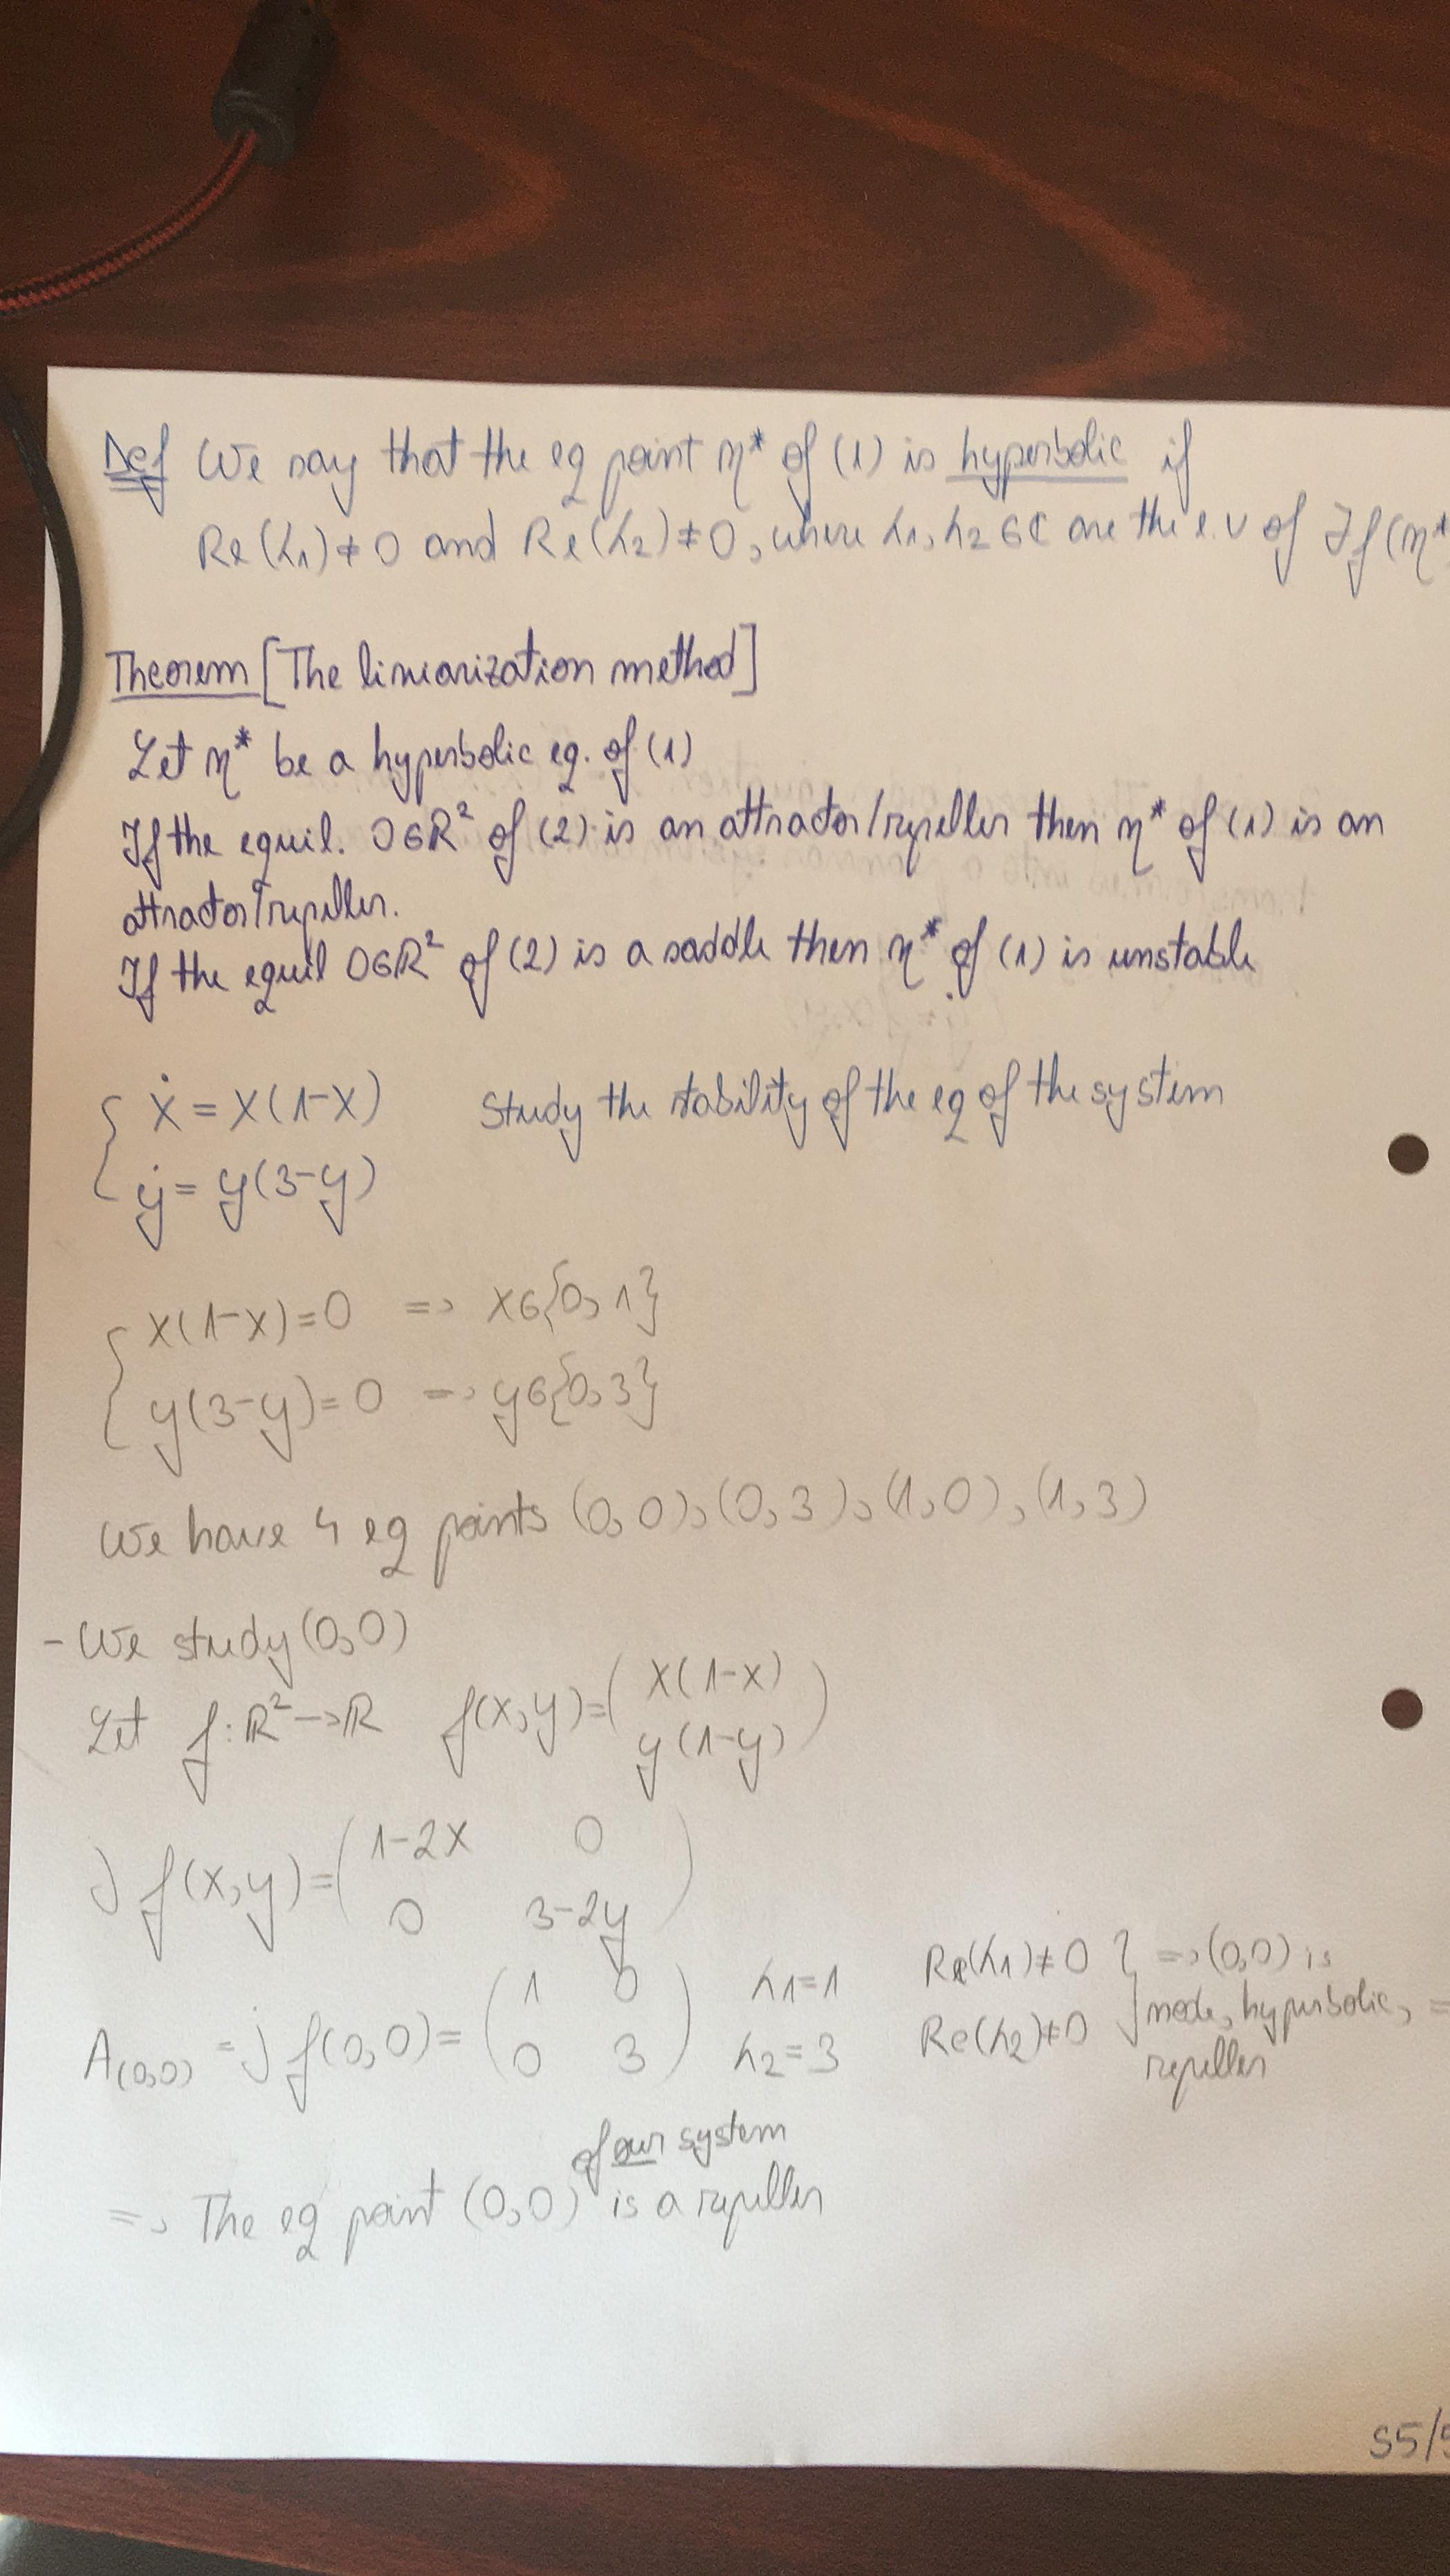 Def We say that the eq point η* of (1) is hyperbolic if
Re(λ1)≠0 and Re(λ2)≠0, where λ1, λ2∈ℂ are the e.v of Jf(η*
Theorem [The liniarization method]
Let η* be a hyperbolic eq. of (1)
If the equil. 0∈ℝ² of (2) is an attractor/repeller then η* of (1) is an
attractor/repeller.
If the equil 0∈ℝ² of (2) is a saddle then η* of (1) is unstable
{ ẋ = x(1-x) Study the stability of the eq of the system
ẏ = y(3-y)
{ x(1-x)=0 => x∈{0,1}
y(3-y)=0 => y∈{0,3}
We have 4 eq points (0,0), (0,3), (1,0), (1,3)
- We study (0,0)
Let f: ℝ²→ℝ f(x,y)=( x(1-x)
y(1-y) )
J f(x,y)=( 1-2x 0
0 3-2y )
A(0,0) = J f(0,0)=( 1 0
0 3 ) λ1=1
λ2=3
Re(λ1)≠0 } => (0,0) is
Re(λ2)≠0 node, hyperbolic, =
repeller
of our system
=> The eq point (0,0) is a repeller
S5/